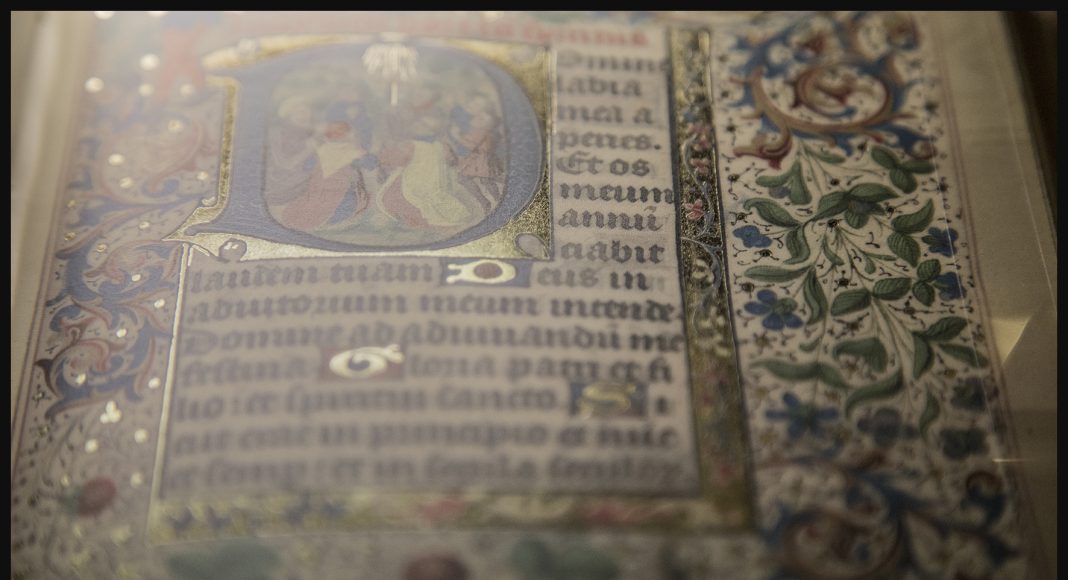 Domine
labia
mea a
peries.
Et os
meum
annūt
ciabit
laudem tuam Deus in
adiutorium meum intende
Domine ad adiuuandū me
festina Gloria patri et fi
lio : et spiritui sancto Si
cut erat in principio et nūc
et semp : et in secula